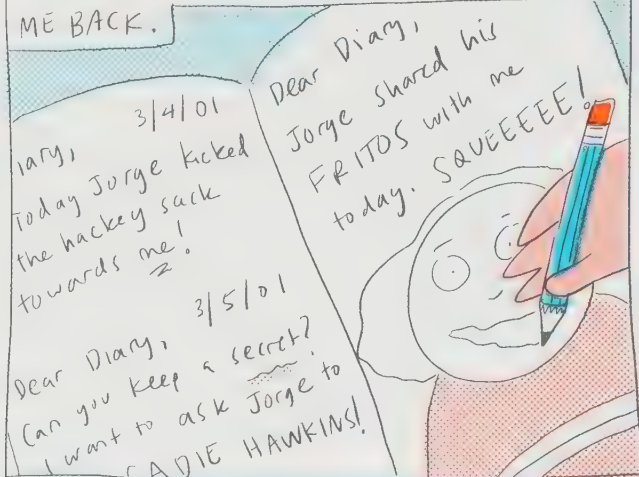 ME BACK.
3/4/01
iary,
Today Jorge kicked
the hackey sack
towards me!
3/5/01
Dear Diary,
Can you keep a secret?
I want to ask Jorge to
ADIE HAWKINS!
Dear Diary,
Jorge shared his
FRITOS with me
today. SQUEEEEE!